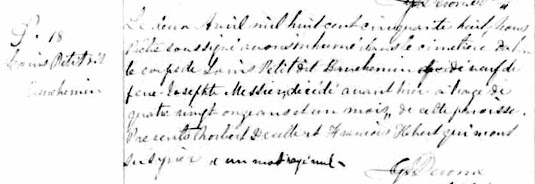 S. 18
Louis Petit dit
Bruchemin
Le deux Avril mil huit cent cinquante huit, Nous
Prêtre soussigné avons inhumé dans le cimetière de
le corps de Louis Petit dit Bruchemin veuf de
feue Josephte Messier, décédé avant hier à l'age de
quatre vingt onze ans et un mois, de cette paroisse.
Présents et François Hébert qui n'ont
su signer un mot rayé nul.
Derome